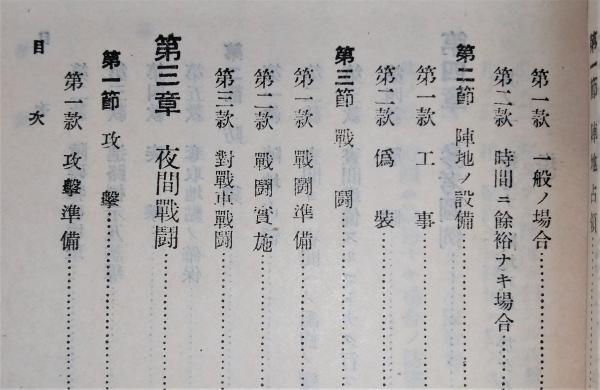 第一節 陣地占領
第一款 一般ノ場合
第二款 時間ニ餘裕ナキ場合
第二節 陣地ノ設備
第一款 工事
第二款 僞裝
第三節 戰鬪
第一款 戰鬪準備
第二款 戰鬪實施
第三款 對戰車戰鬪
第三章 夜間戰鬪
第一節 攻擊
第一款 攻擊準備
目次